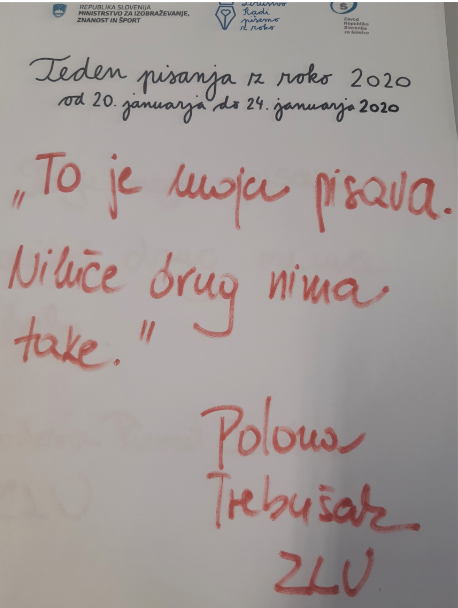 REPUBLIKA SLOVENIJA
MINISTRSTVO ZA IZOBRAŽEVANJE,
ZNANOST IN ŠPORT
Društvo
Radi
pišemo
z roko
Zavod
Republike
Slovenije
za šolstvo
Teden pisanja z roko 2020
od 20. januarja do 24. januarja 2020
„To je moja pisava.
Nihče drug nima
take."
Polona
Trebušak
ZLV